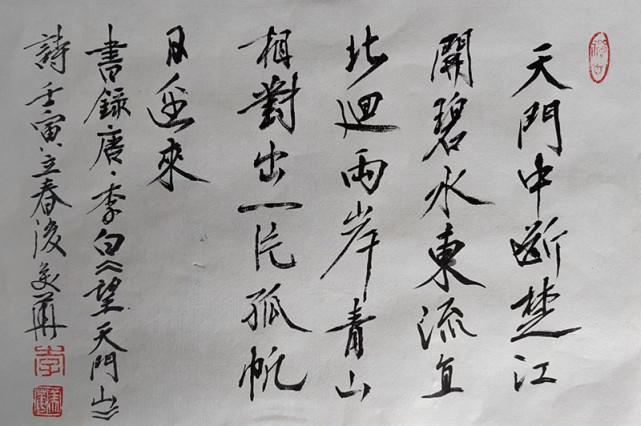 天門中斷楚江
開碧水東流直
北迴兩岸青山
相對出一片孤帆
日邊來
書錄唐、李白《望天門山》
詩壬寅立春後美華
李